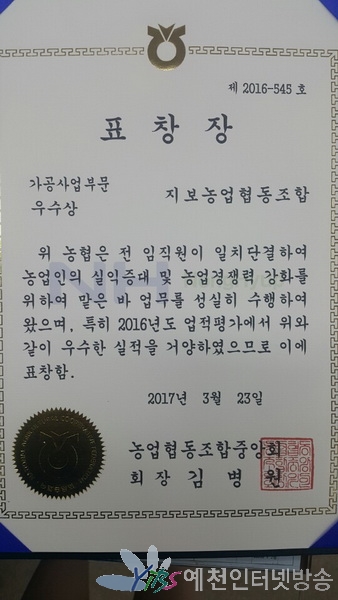 제 2016-545 호
표 창 장
가공사업부문
우수상
지보농업협동조합
위 농협은 전 임직원이 일치단결하여
농업인의 실익증대 및 농업경쟁력 강화를
위하여 맡은 바 업무를 성실히 수행하여
왔으며, 특히 2016년도 업적평가에서 위와
같이 우수한 실적을 거양하였으므로 이에
표창함.
2017년 3월 23일
농업협동조합중앙회
회 장 김 병 원
예천인터넷방송